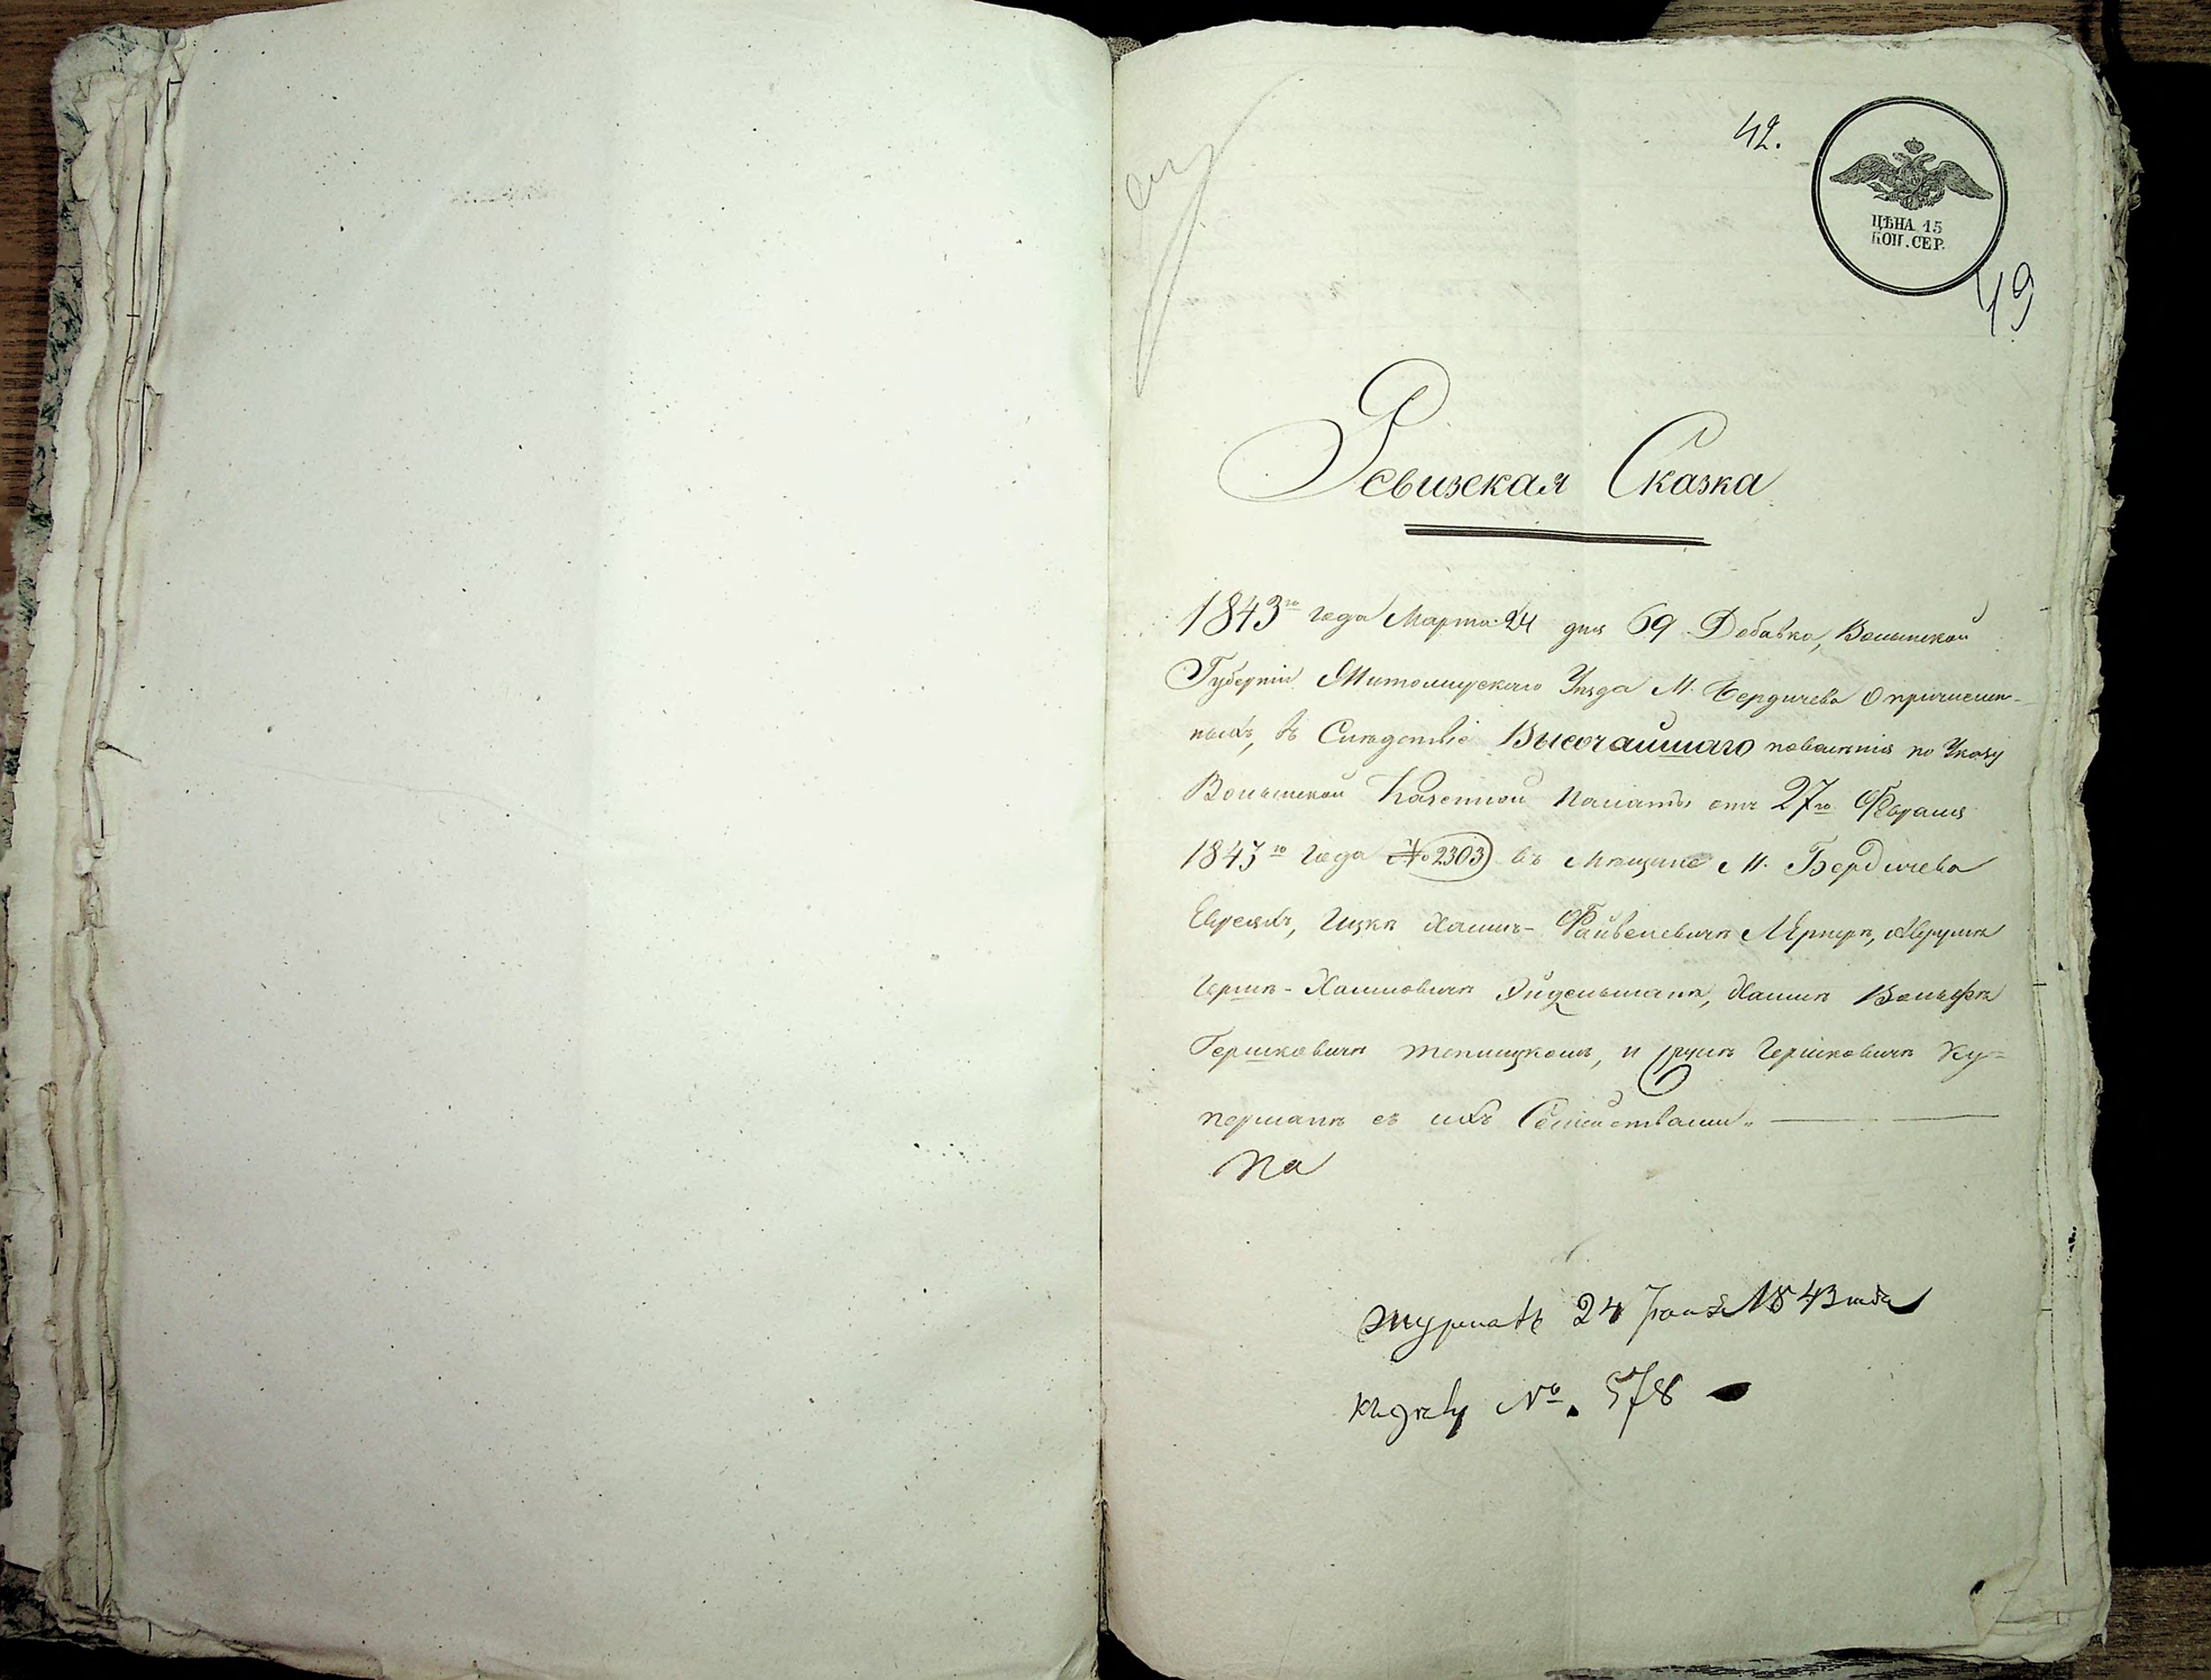 42.
ЦѢНА 15
КОП. СЕР.
49
Ревизская Сказка
1843го года Марта 24 дня 69 Добавка, Волынской
Губернiи Житомирскаго Уѣзда М. Бердичева О причислен-
ныхъ, въ Слѣдствiе Высочайшаго повелѣнiя по Указу
Волынской Казенной Палаты отъ 27го Февраля
1843го года № 2303 въ Мѣщане М. Бердичева
Евреяхъ, Ицкѣ Хаимъ-Файвелевичѣ Лернерѣ, Аврумѣ
Гершъ-Хаимовичѣ Эйдельманѣ, Хаимѣ Вольфѣ
Гершковичѣ Теплицкомъ, и Гершковичѣ Ку-
перманѣ съ ихъ Семействами.
На
Журналъ 24 1843 года
къ дѣлу № 578